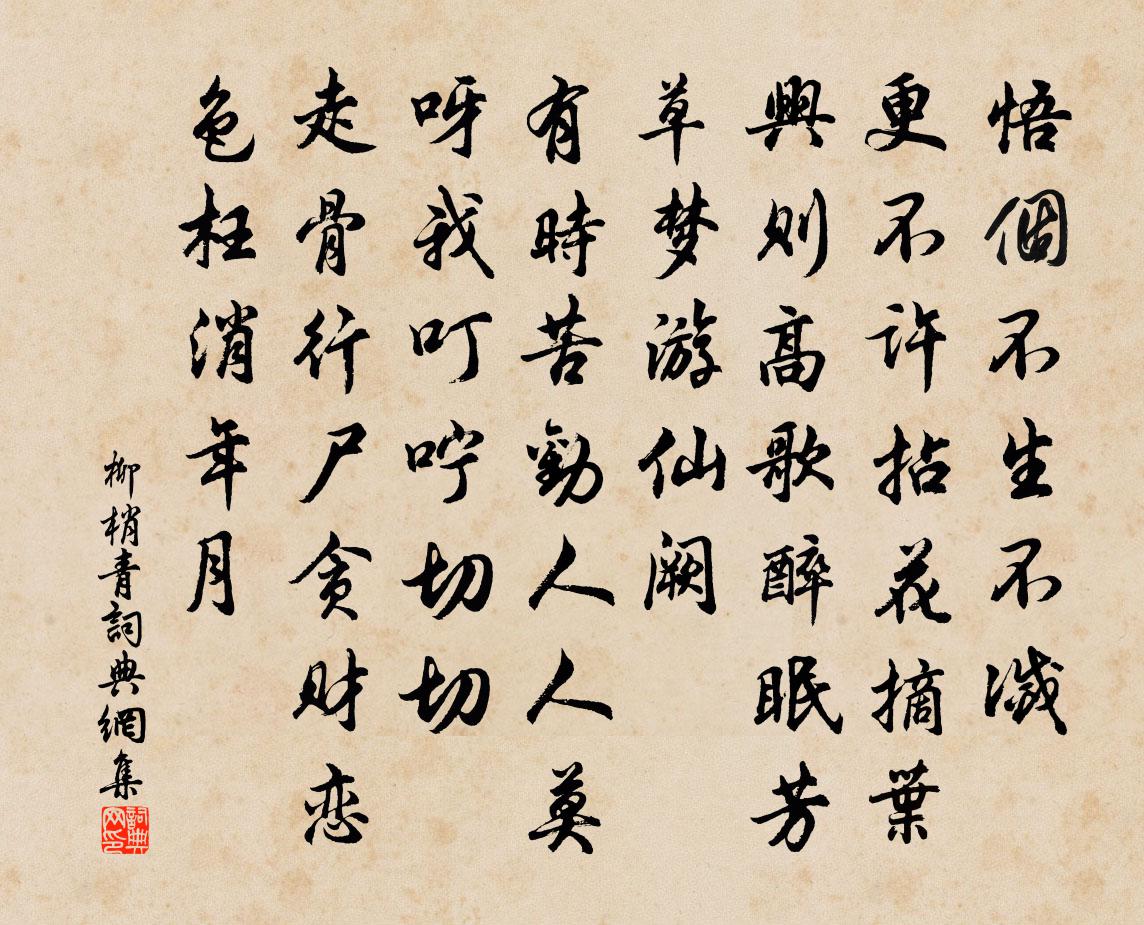 悟個不生不滅
更不許拈花摘葉
興则高歌醉眠芳
草梦游仙阙
有時苦勸人人莫
呀我叮咛切切
走骨行尸贪财恋
色枉消年月
柳梢青詞典網集
詞典网印